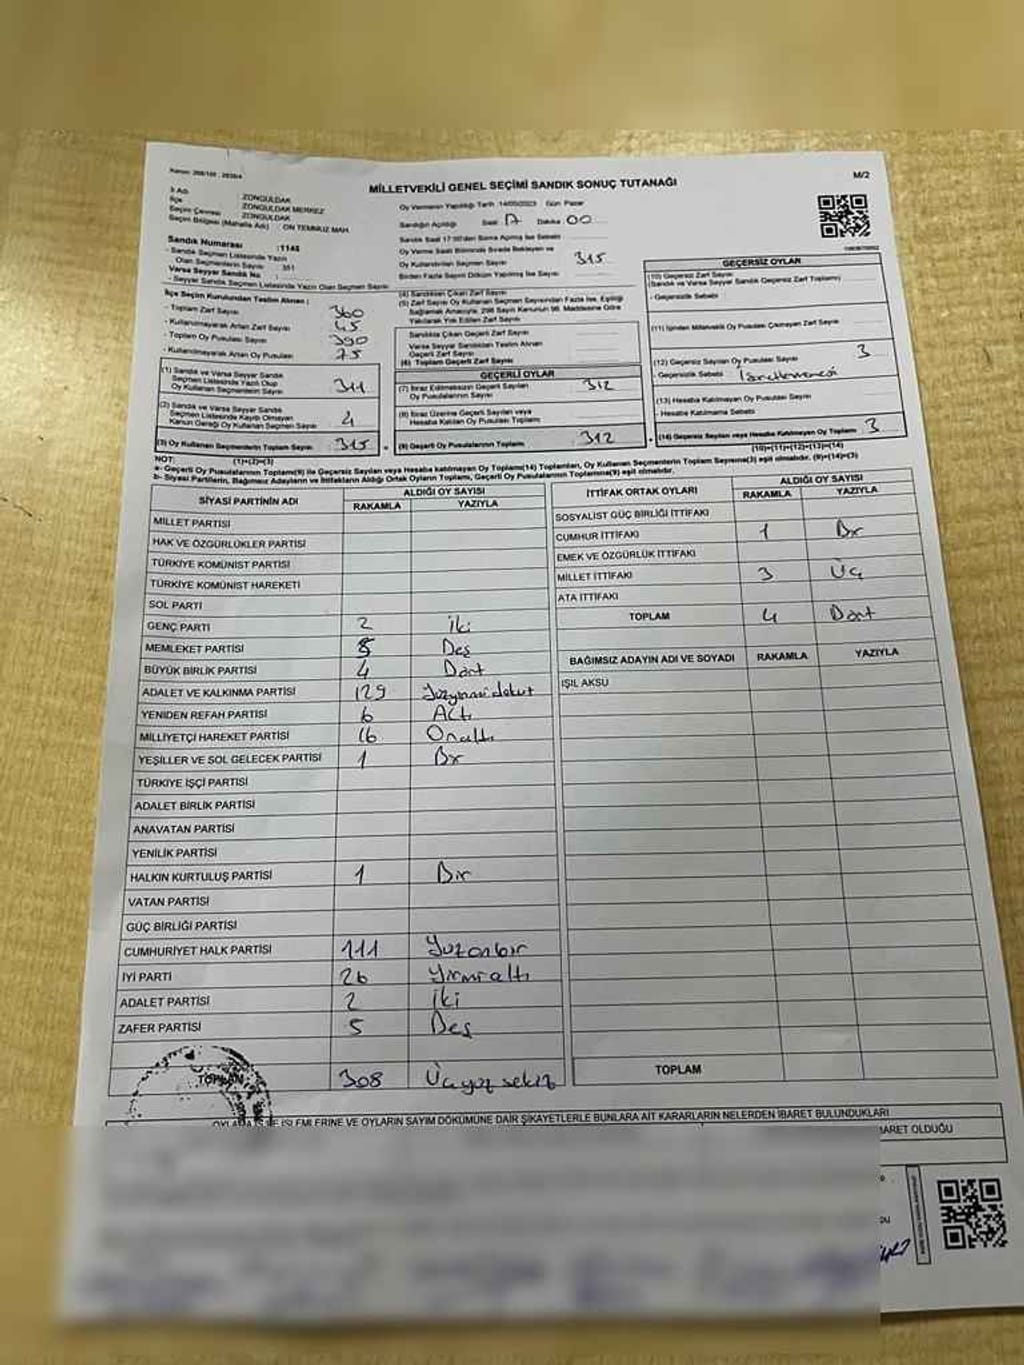 MİLLETVEKİLİ GENEL SEÇİMİ SANDIK SONUÇ TUTANAĞI
M/2
İl Adı : ZONGULDAK
İlçe : ZONGULDAK MERKEZ
Seçim Çevresi : ZONGULDAK
Seçim Bölgesi (Mahalle Adı) : ON TEMMUZ MAH.
Sandık Numarası : 1146
- Sandık Seçmen Listesinde Yazılı
Olan Seçmenlerin Sayısı : 351
Varsa Seyyar Sandık No :
- Seyyar Sandık Seçmen Listesinde Yazılı Olan Seçmen Sayısı :
Oy Vermenin Yapıldığı Tarih 14/05/2023 Gün Pazar
Sandığın Açıldığı Saat 17 Dakika 00
Sandık Saat 17:00'den Sonra Açılmış İse Sebebi
Oy Verme Saati Bitiminde Sırada Bekleyen ve
Oy Kullandırılan Seçmen Sayısı 315
Birden Fazla Sayım Döküm Yapılmış İse Sayısı
İlçe Seçim Kurulundan Teslim Alınan :
- Toplam Zarf Sayısı 360
- Kullanılmayarak Artan Zarf Sayısı 45
- Toplam Oy Pusulası Sayısı 390
- Kullanılmayarak Artan Oy Pusulası 75
(1) Sandık ve Varsa Seyyar Sandık
Seçmen Listesinde Yazılı Olup
Oy Kullanan Seçmenlerin Sayısı 311
(2) Sandık ve Varsa Seyyar Sandık
Seçmen Listesinde Kayıtlı Olmayan
Kanun Gereği Oy Kullanan Seçmen Sayısı 4
(3) Oy Kullanan Seçmenlerin Toplam Sayısı 315
(1)+(2)=(3)
(4) Sandıktan Çıkan Zarf Sayısı
(5) Zarf Sayısı Oy Kullanan Seçmen Sayısından Fazla İse, Eşitliği
Sağlamak Amacıyla, 298 Sayılı Kanunun 98. Maddesine Göre
Yakılarak Yok Edilen Zarf Sayısı
Sandıkta Çıkan Geçerli Zarf Sayısı
Varsa Seyyar Sandıktan Teslim Alınan
Geçerli Zarf Sayısı
(6) Toplam Geçerli Zarf Sayısı
GEÇERLİ OYLAR
(7) İtiraz Edilmeksizin Geçerli Sayılan
Oy Pusulalarının Sayısı 312
(8) İtiraz Üzerine Geçerli Sayılan veya
Hesaba Katılan Oy Pusulası Sayısı
(9) Geçerli Oy Pusulalarının Toplamı 312
GEÇERSİZ OYLAR
(10) Geçersiz Zarf Sayısı
(Sandık ve Varsa Seyyar Sandık Geçersiz Zarf Toplamı)
- Geçersizlik Sebebi
(11) İçinden Milletvekili Oy Pusulası Çıkmayan Zarf Sayısı
(12) Geçersiz Sayılan Oy Pusulası Sayısı 3
- Geçersizlik Sebebi
(13) Hesaba Katılmayan Oy Pusulası Sayısı
- Hesaba Katılmama Sebebi
(14) Geçersiz Sayılan veya Hesaba Katılmayan Oy Toplamı 3
(10)+(11)+(12)+(13)=(14)
NOT:
a- Geçerli Oy Pusulalarının Toplamı(9) ile Geçersiz Sayılan veya Hesaba katılmayan Oy Toplamı(14) Toplamları, Oy Kullanan Seçmenlerin Toplam Sayısına(3) eşit olmalıdır. (9)+(14)=(3)
b- Siyasi Partilerin, Bağımsız Adayların ve İttifakların Aldığı Ortak Oyların Toplamı, Geçerli Oy Pusulalarının Toplamına(9) eşit olmalıdır.
SİYASİ PARTİNİN ADI ALDIĞI OY SAYISI
RAKAMLA YAZIYLA
MİLLET PARTİSİ
HAK VE ÖZGÜRLÜKLER PARTİSİ
TÜRKİYE KOMÜNİST PARTİSİ
TÜRKİYE KOMÜNİST HAREKETİ
SOL PARTİ
GENÇ PARTİ 2 İki
MEMLEKET PARTİSİ 5 Beş
BÜYÜK BİRLİK PARTİSİ 4 Dört
ADALET VE KALKINMA PARTİSİ 129 Yüzyirmidokuz
YENİDEN REFAH PARTİSİ 6 Altı
MİLLİYETÇİ HAREKET PARTİSİ 16 Onaltı
YEŞİLLER VE SOL GELECEK PARTİSİ 1 Bir
TÜRKİYE İŞÇİ PARTİSİ
ADALET BİRLİK PARTİSİ
ANAVATAN PARTİSİ
YENİLİK PARTİSİ
HALKIN KURTULUŞ PARTİSİ 1 Bir
VATAN PARTİSİ
GÜÇ BİRLİĞİ PARTİSİ
CUMHURİYET HALK PARTİSİ 111 Yüzonbir
İYİ PARTİ 26 Yirmialtı
ADALET PARTİSİ 2 İki
ZAFER PARTİSİ 5 Beş
TOPLAM 308 Üçyüzsekiz
İTTİFAK ORTAK OYLARI ALDIĞI OY SAYISI
RAKAMLA YAZIYLA
SOSYALİST GÜÇ BİRLİĞİ İTTİFAKI
CUMHUR İTTİFAKI 1 Bir
EMEK VE ÖZGÜRLÜK İTTİFAKI
MİLLET İTTİFAKI 3 Üç
ATA İTTİFAKI
TOPLAM 4 Dört
BAĞIMSIZ ADAYIN ADI VE SOYADI RAKAMLA YAZIYLA
IŞIL AKSU
TOPLAM
İŞLEMLERİNE VE OYLARIN SAYIM DÖKÜMÜNE DAİR ŞİKAYETLERLE BUNLARA AİT KARARLARIN NELERDEN İBARET BULUNDUKLARI
BARET OLDUĞU